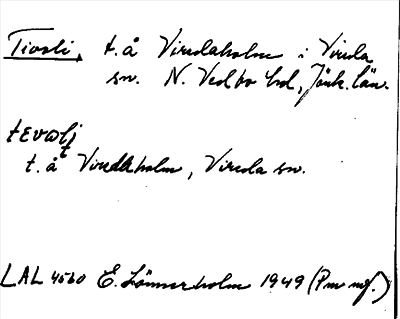 Tivoli, t. å Viredaholm i Vireda
sn. N. Vedbo hd, Jönk. län.
tɛvωlj
t. å Viredaholm, Vireda sn.
LAL 4560 E. Lönnerholm 1949 (Pm mf.)